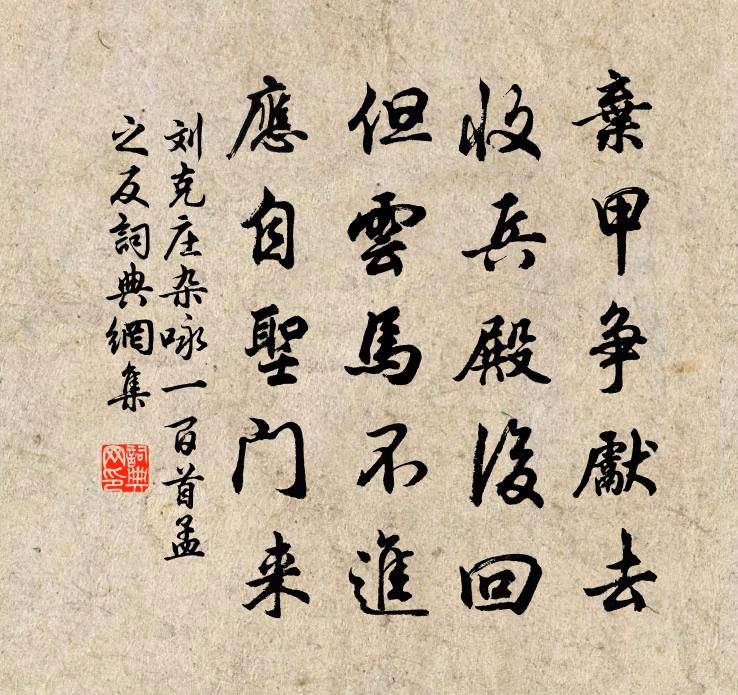 棄甲争獻去
收兵殿後回
但雲馬不進
應自聖門来
刘克庄杂咏一百首孟
之反詞典網集
詞典
网印